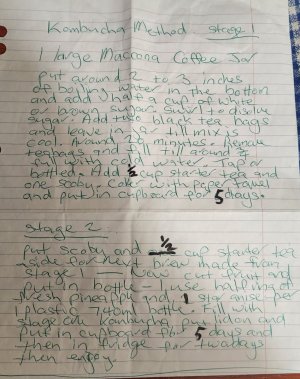 Kombucha Method Stage 1
1 large Maccona Coffee Jar
Put around 2 to 3 inches
of boiling water in the bottom
and add half a cup of white
or brown sugar swirl to disolve
sugar. Add two black tea bags
and leave in jar till mix is
cool. Around 30 minutes. Remove
teabags and fill till around 3/4
full with cold water. Tap or
bottled. Add 1/2 cup starter tea and
one scoby. Cover with paper towel
and put in cupboard for 5 days.
Stage 2
Put scoby and 1/2 cup starter tea
aside for next brew made from
stage 1 cut fruit and
put in bottle - I use half ring of
fresh pineapple and 1 star anise per
1 plastic 740ml bottle. Fill with
stage one kombucha put lid on and
put in cupboard for 5 days and
then in fridge for two days
then enjoy.